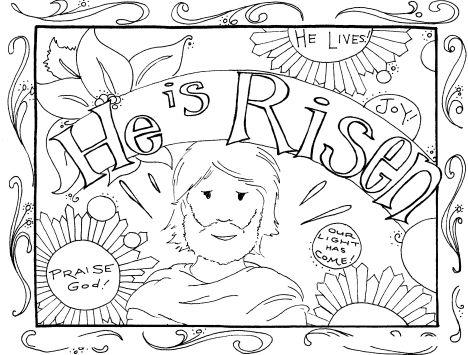 HE LIVES!
He is Risen
JOY!
OUR
LIGHT
HAS
COME!
PRAISE
God!